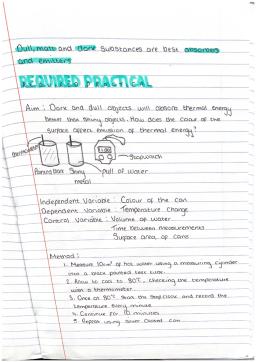 Dull, matt and dark substances are best absorbers
and emitters
REQUIRED PRACTICAL
Aim: Dark and dull objects will absorb thermal energy
better than shiny objects. How does the colour of the
surface affect emission of thermal energy?
Stopwatch
Shiny
metal
full of water
Independent Variable: Colour of the can
Dependent Variable: Temperature change
Control Variable: Volume of water
Time between measurements
Surface area of cans
Method:
1. Measure 10cm³ of hot water using a measuring cylinder
into a black painted test tube.
2. Allow to cool to 80°C, checking the temperature
with a thermometer
3. Once at 80°C start the stop clock and record the
temperature every minute
4. Continue for 10 minutes
5. Repeat using silver coloured can